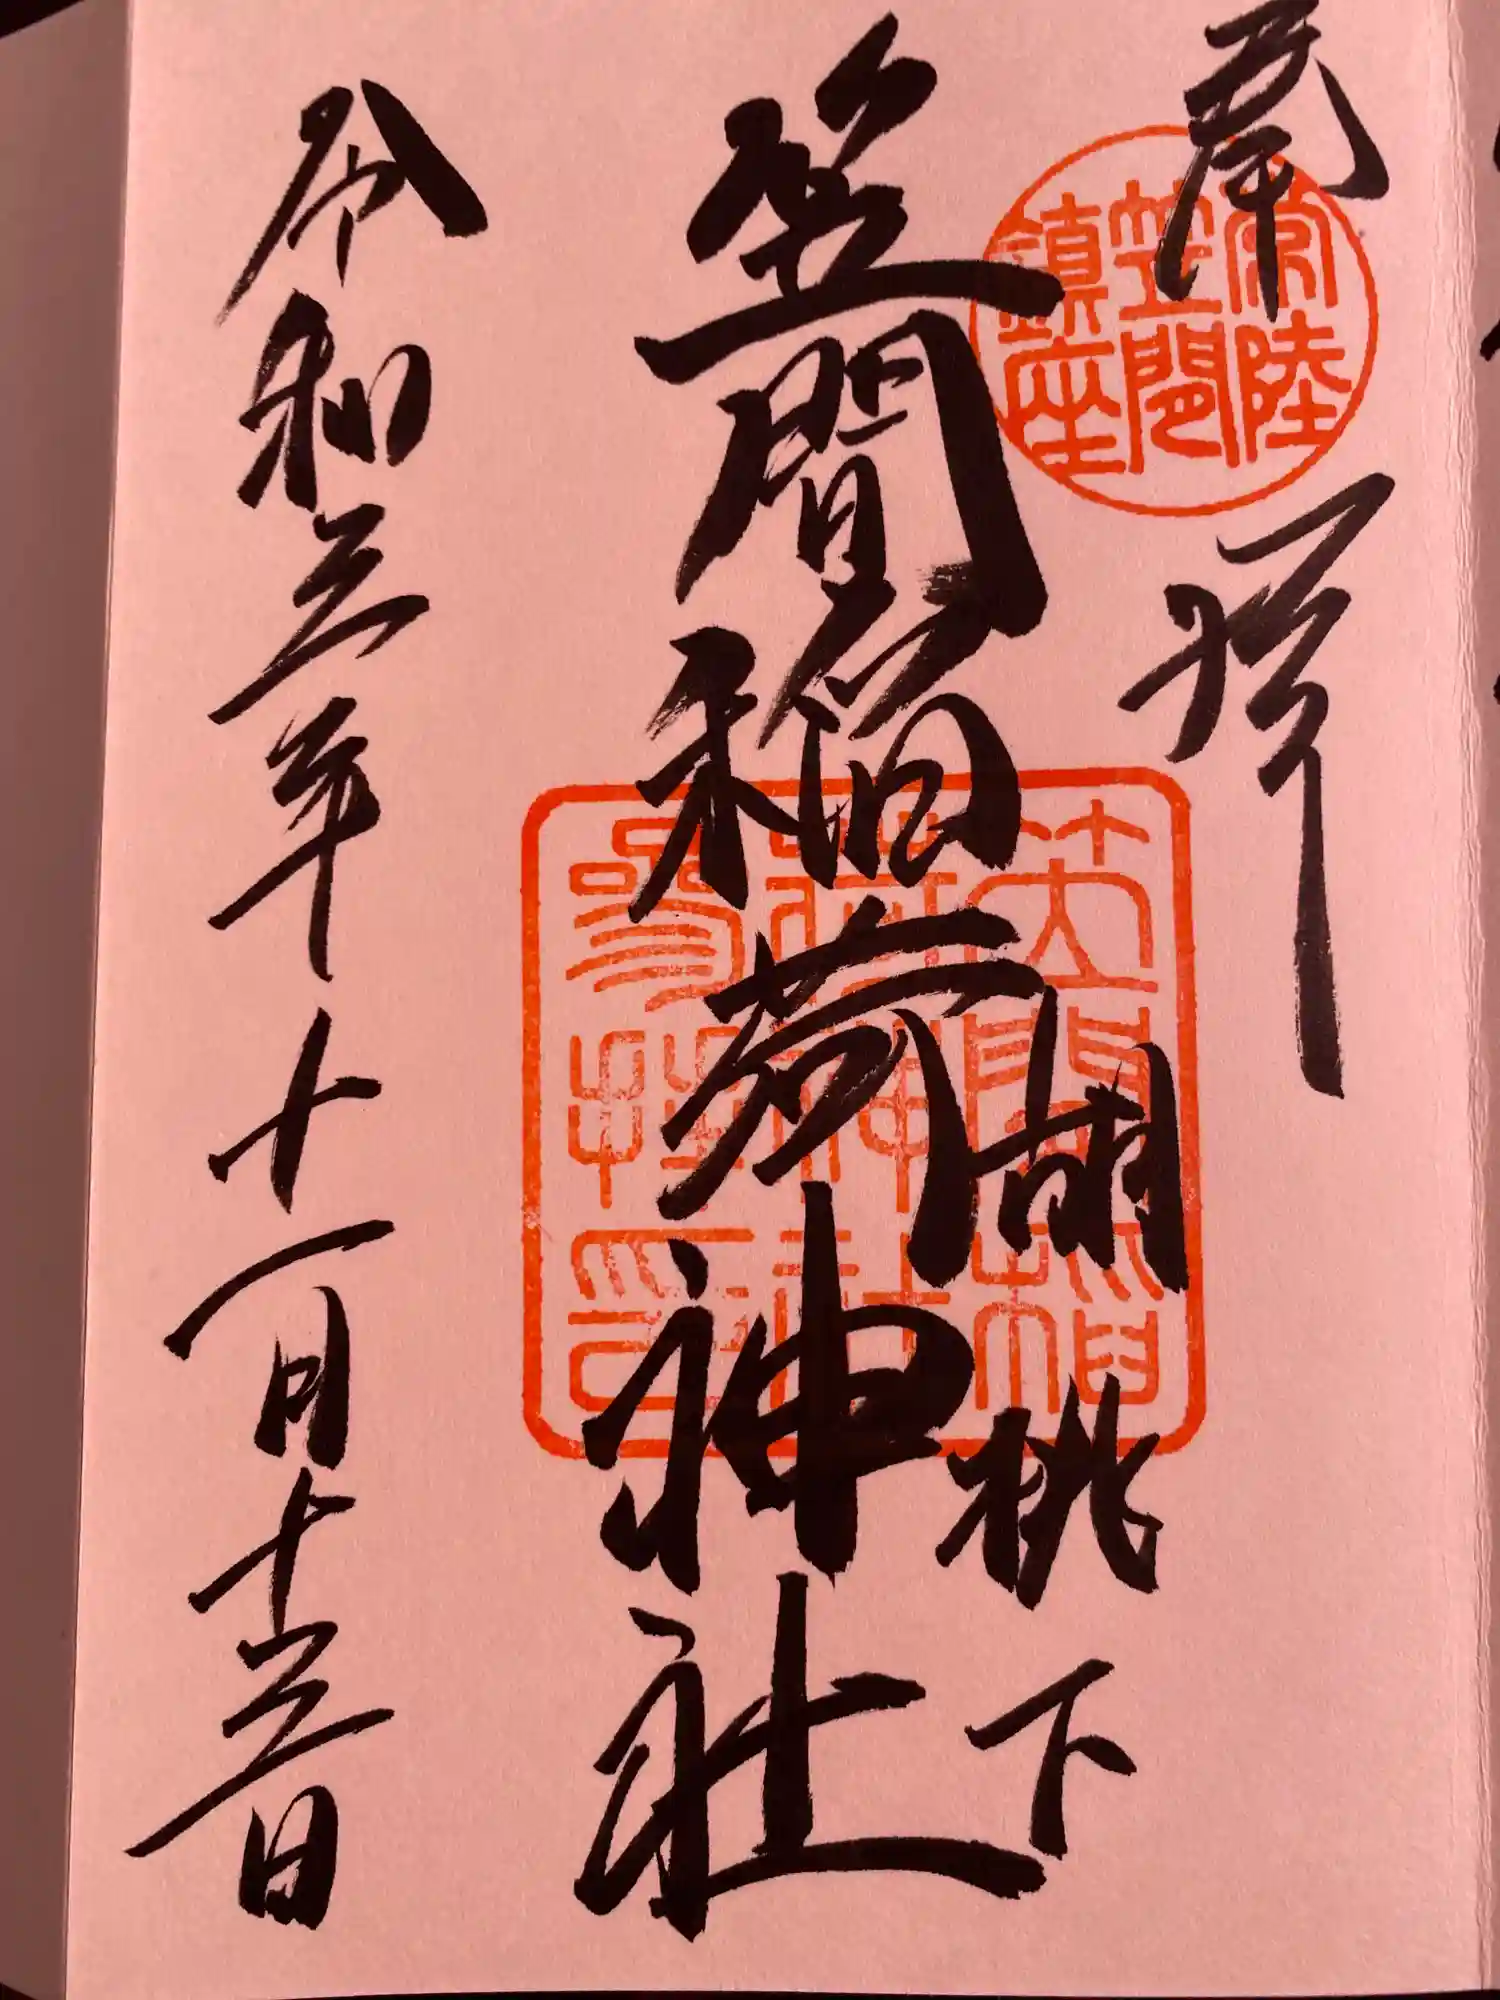 奉拝
常陸
笠間
鎮座
胡桃下
笠間稲荷神社
笠間稲
荷神社
参拝印
令和三年十一月十三日